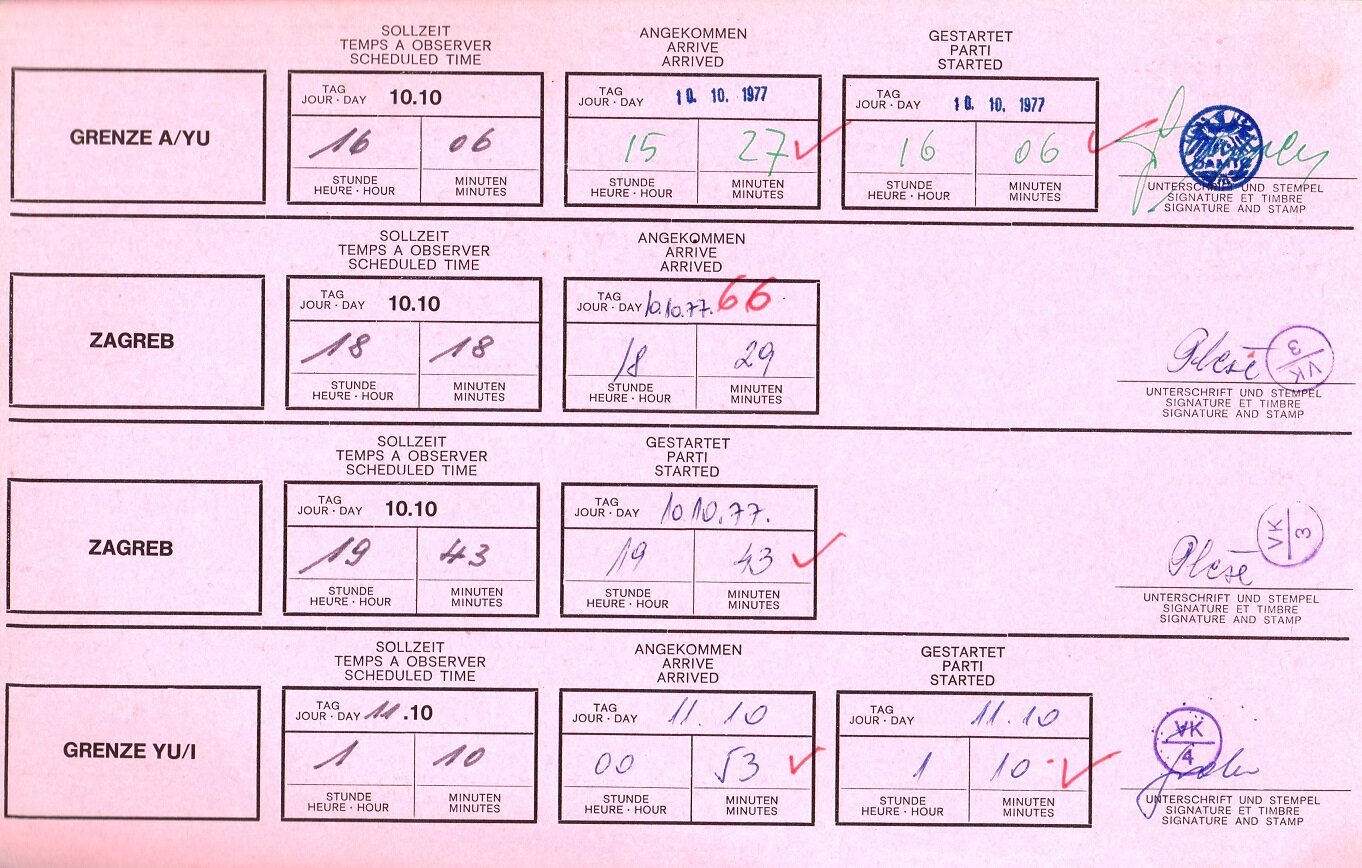 SOLLZEIT
TEMPS A OBSERVER
SCHEDULED TIME
ANGEKOMMEN
ARRIVE
ARRIVED
GESTARTET
PARTI
STARTED
GRENZE A/YU
TAG
JOUR · DAY 10.10
16 06
STUNDE
HEURE · HOUR
MINUTEN
MINUTES
TAG
JOUR · DAY 10. 10. 1977
15 27
STUNDE
HEURE · HOUR
MINUTEN
MINUTES
TAG
JOUR · DAY 10. 10. 1977
16 06
STUNDE
HEURE · HOUR
MINUTEN
MINUTES
UNTERSCHRIFT UND STEMPEL
SIGNATURE ET TIMBRE
SIGNATURE AND STAMP
SOLLZEIT
TEMPS A OBSERVER
SCHEDULED TIME
ANGEKOMMEN
ARRIVE
ARRIVED
ZAGREB
TAG
JOUR · DAY 10.10
18 18
STUNDE
HEURE · HOUR
MINUTEN
MINUTES
TAG
JOUR · DAY 10.10.77. 66
18 29
STUNDE
HEURE · HOUR
MINUTEN
MINUTES
VK
3
UNTERSCHRIFT UND STEMPEL
SIGNATURE ET TIMBRE
SIGNATURE AND STAMP
SOLLZEIT
TEMPS A OBSERVER
SCHEDULED TIME
GESTARTET
PARTI
STARTED
ZAGREB
TAG
JOUR · DAY 10.10
19 43
STUNDE
HEURE · HOUR
MINUTEN
MINUTES
TAG
JOUR · DAY 10.10.77.
19 43
STUNDE
HEURE · HOUR
MINUTEN
MINUTES
VK
3
UNTERSCHRIFT UND STEMPEL
SIGNATURE ET TIMBRE
SIGNATURE AND STAMP
SOLLZEIT
TEMPS A OBSERVER
SCHEDULED TIME
ANGEKOMMEN
ARRIVE
ARRIVED
GESTARTET
PARTI
STARTED
GRENZE YU/I
TAG
JOUR · DAY 11.10
1 10
STUNDE
HEURE · HOUR
MINUTEN
MINUTES
TAG
JOUR · DAY 11.10
00 53
STUNDE
HEURE · HOUR
MINUTEN
MINUTES
TAG
JOUR · DAY 11.10
1 10
STUNDE
HEURE · HOUR
MINUTEN
MINUTES
VK
4
UNTERSCHRIFT UND STEMPEL
SIGNATURE ET TIMBRE
SIGNATURE AND STAMP